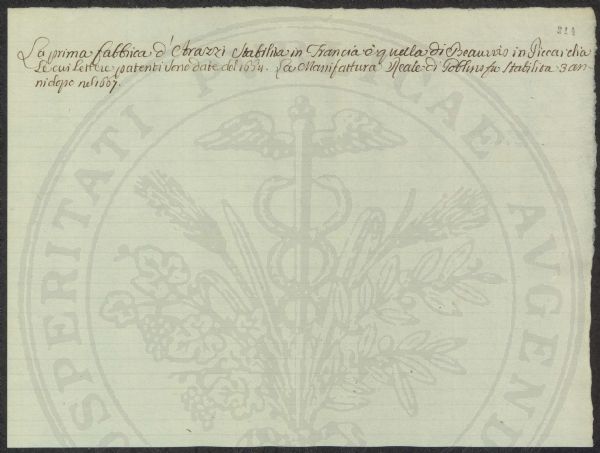 314
La prima fabbrica d'Arazzi Stabilita in Francia è quella di Beauvais in Piccardia
le cui lettere patenti sono date del 1664. La Manifattura Reale di Goblins fu Stabilita 3 an-
ni dopo nel 1667.
PROSPERITATI PUBLICAE AUGENDAE